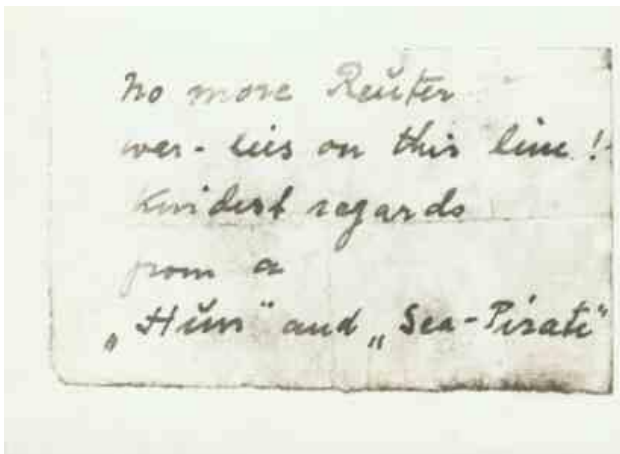 No more Reŭter
war-lies on this line!
Kindest regards
from a
„Hŭn" and „Sea-Pirate"